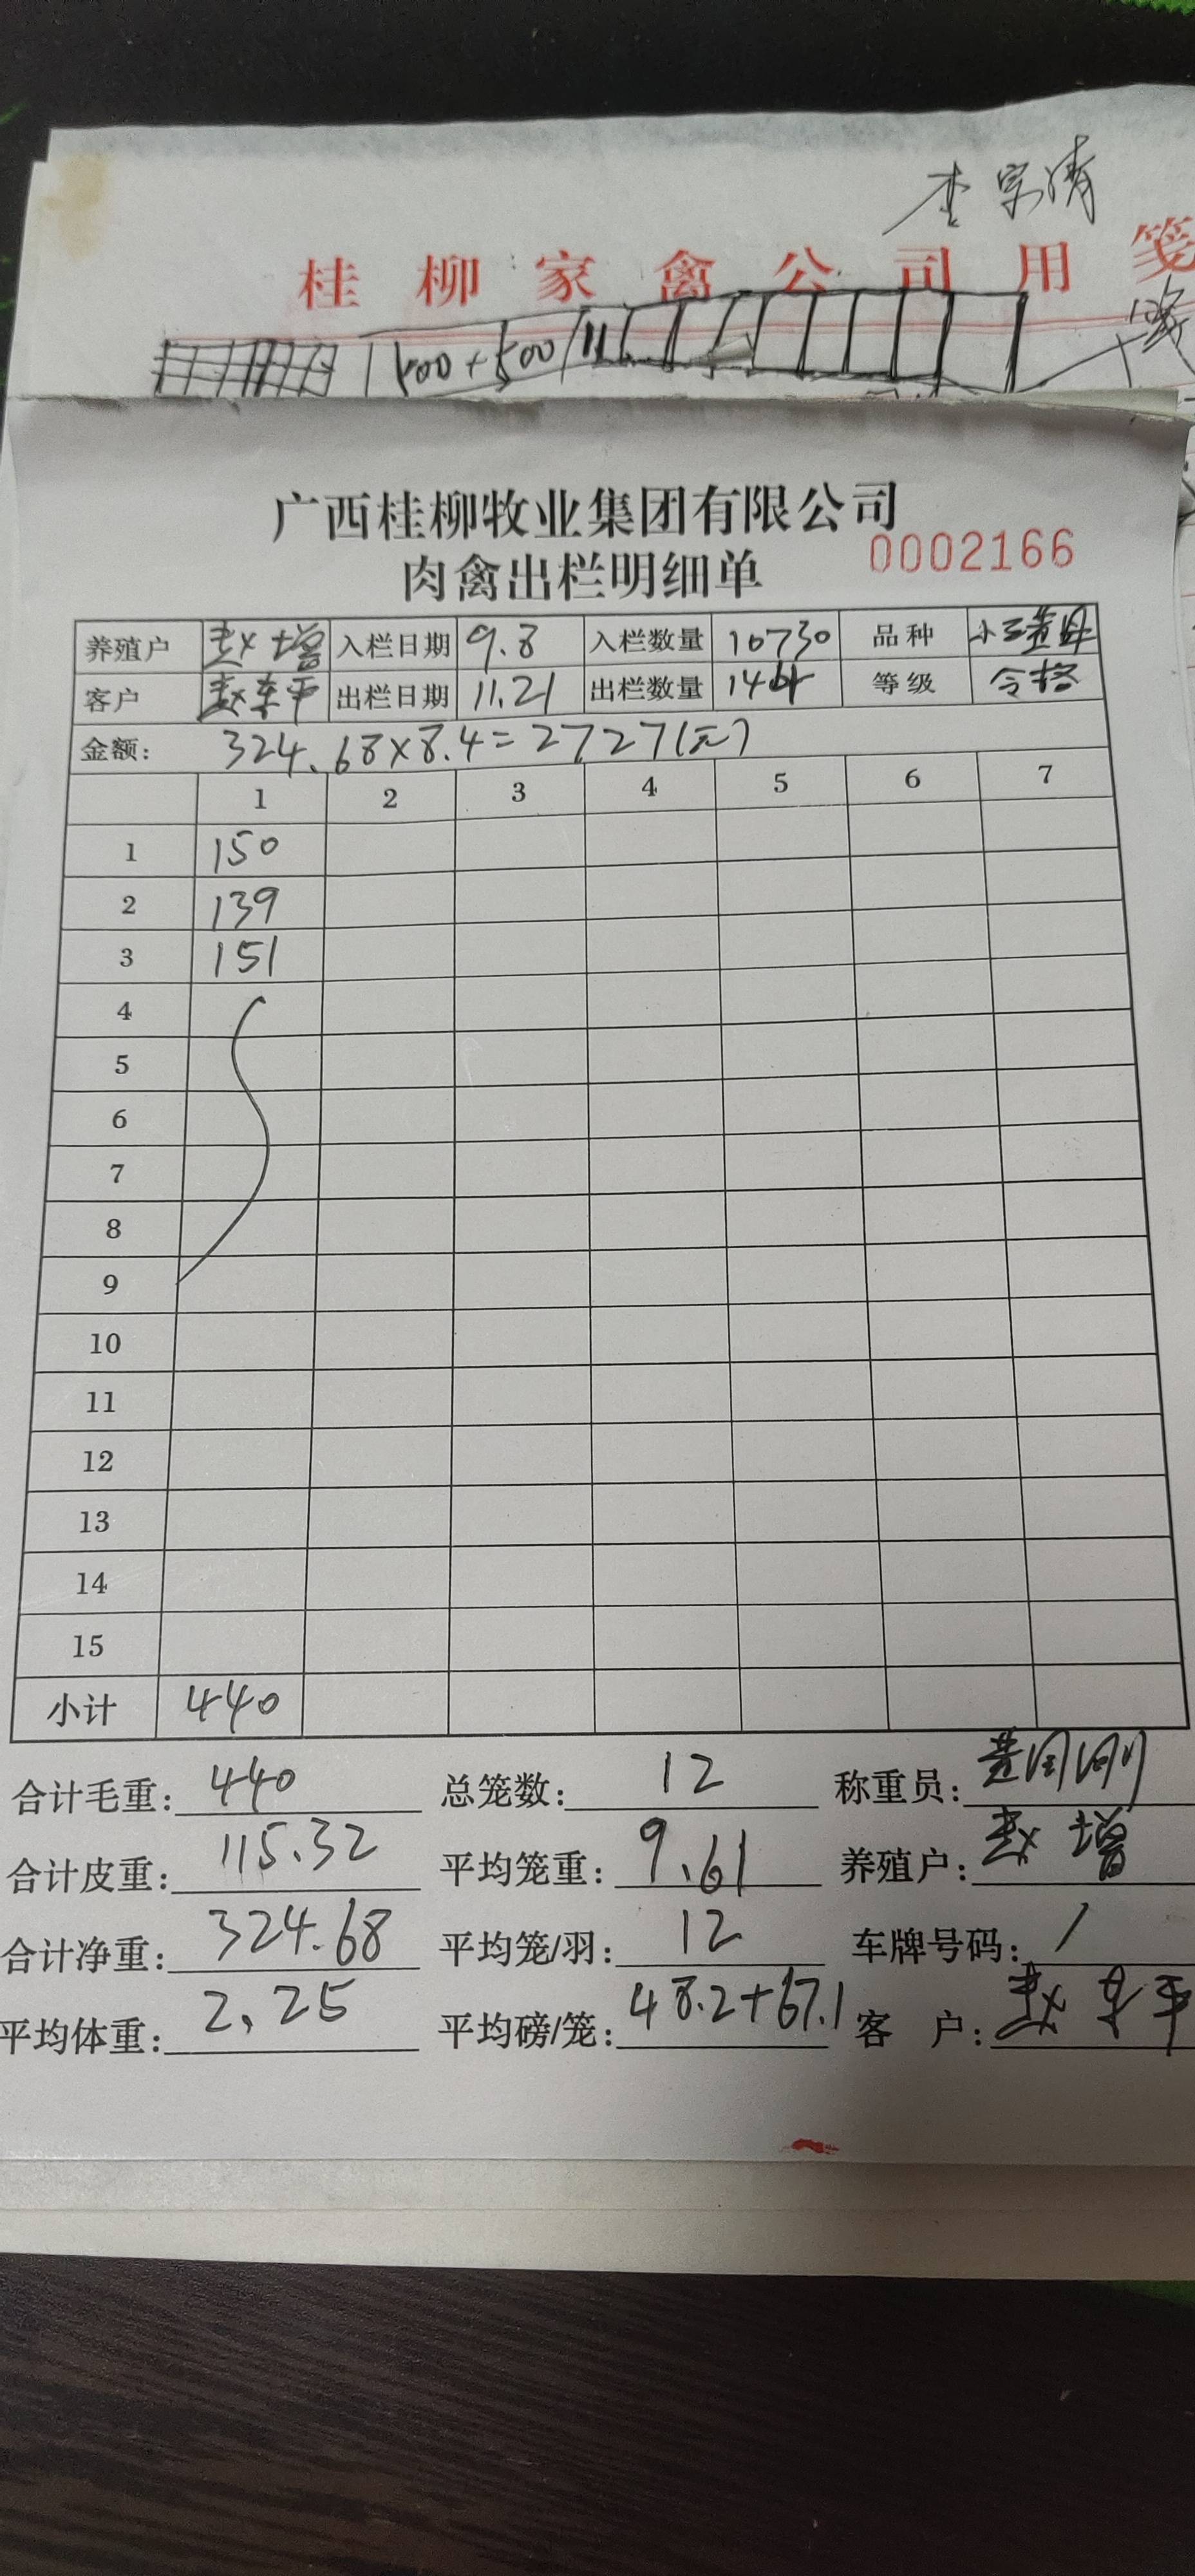 李宗清
桂柳家禽公司用笺
500+500
广西桂柳牧业集团有限公司
肉禽出栏明细单 0002166
养殖户 赵增 入栏日期 9.8 入栏数量 10730 品种
客户 赵东平 出栏日期 11.21 出栏数量 144 等级 合格
金额: 324.68×8.4=2727(元)
1 2 3 4 5 6 7
1 150
2 139
3 151
4
5
6
7
8
9
10
11
12
13
14
15
小计 440
合计毛重: 440 总笼数: 12 称重员:
合计皮重: 115.32 平均笼重: 9.61 养殖户: 赵增
合计净重: 324.68 平均笼/羽: 12 车牌号码: /
平均体重: 2.25 平均磅/笼: 48.2+67.1 客 户: 赵东平